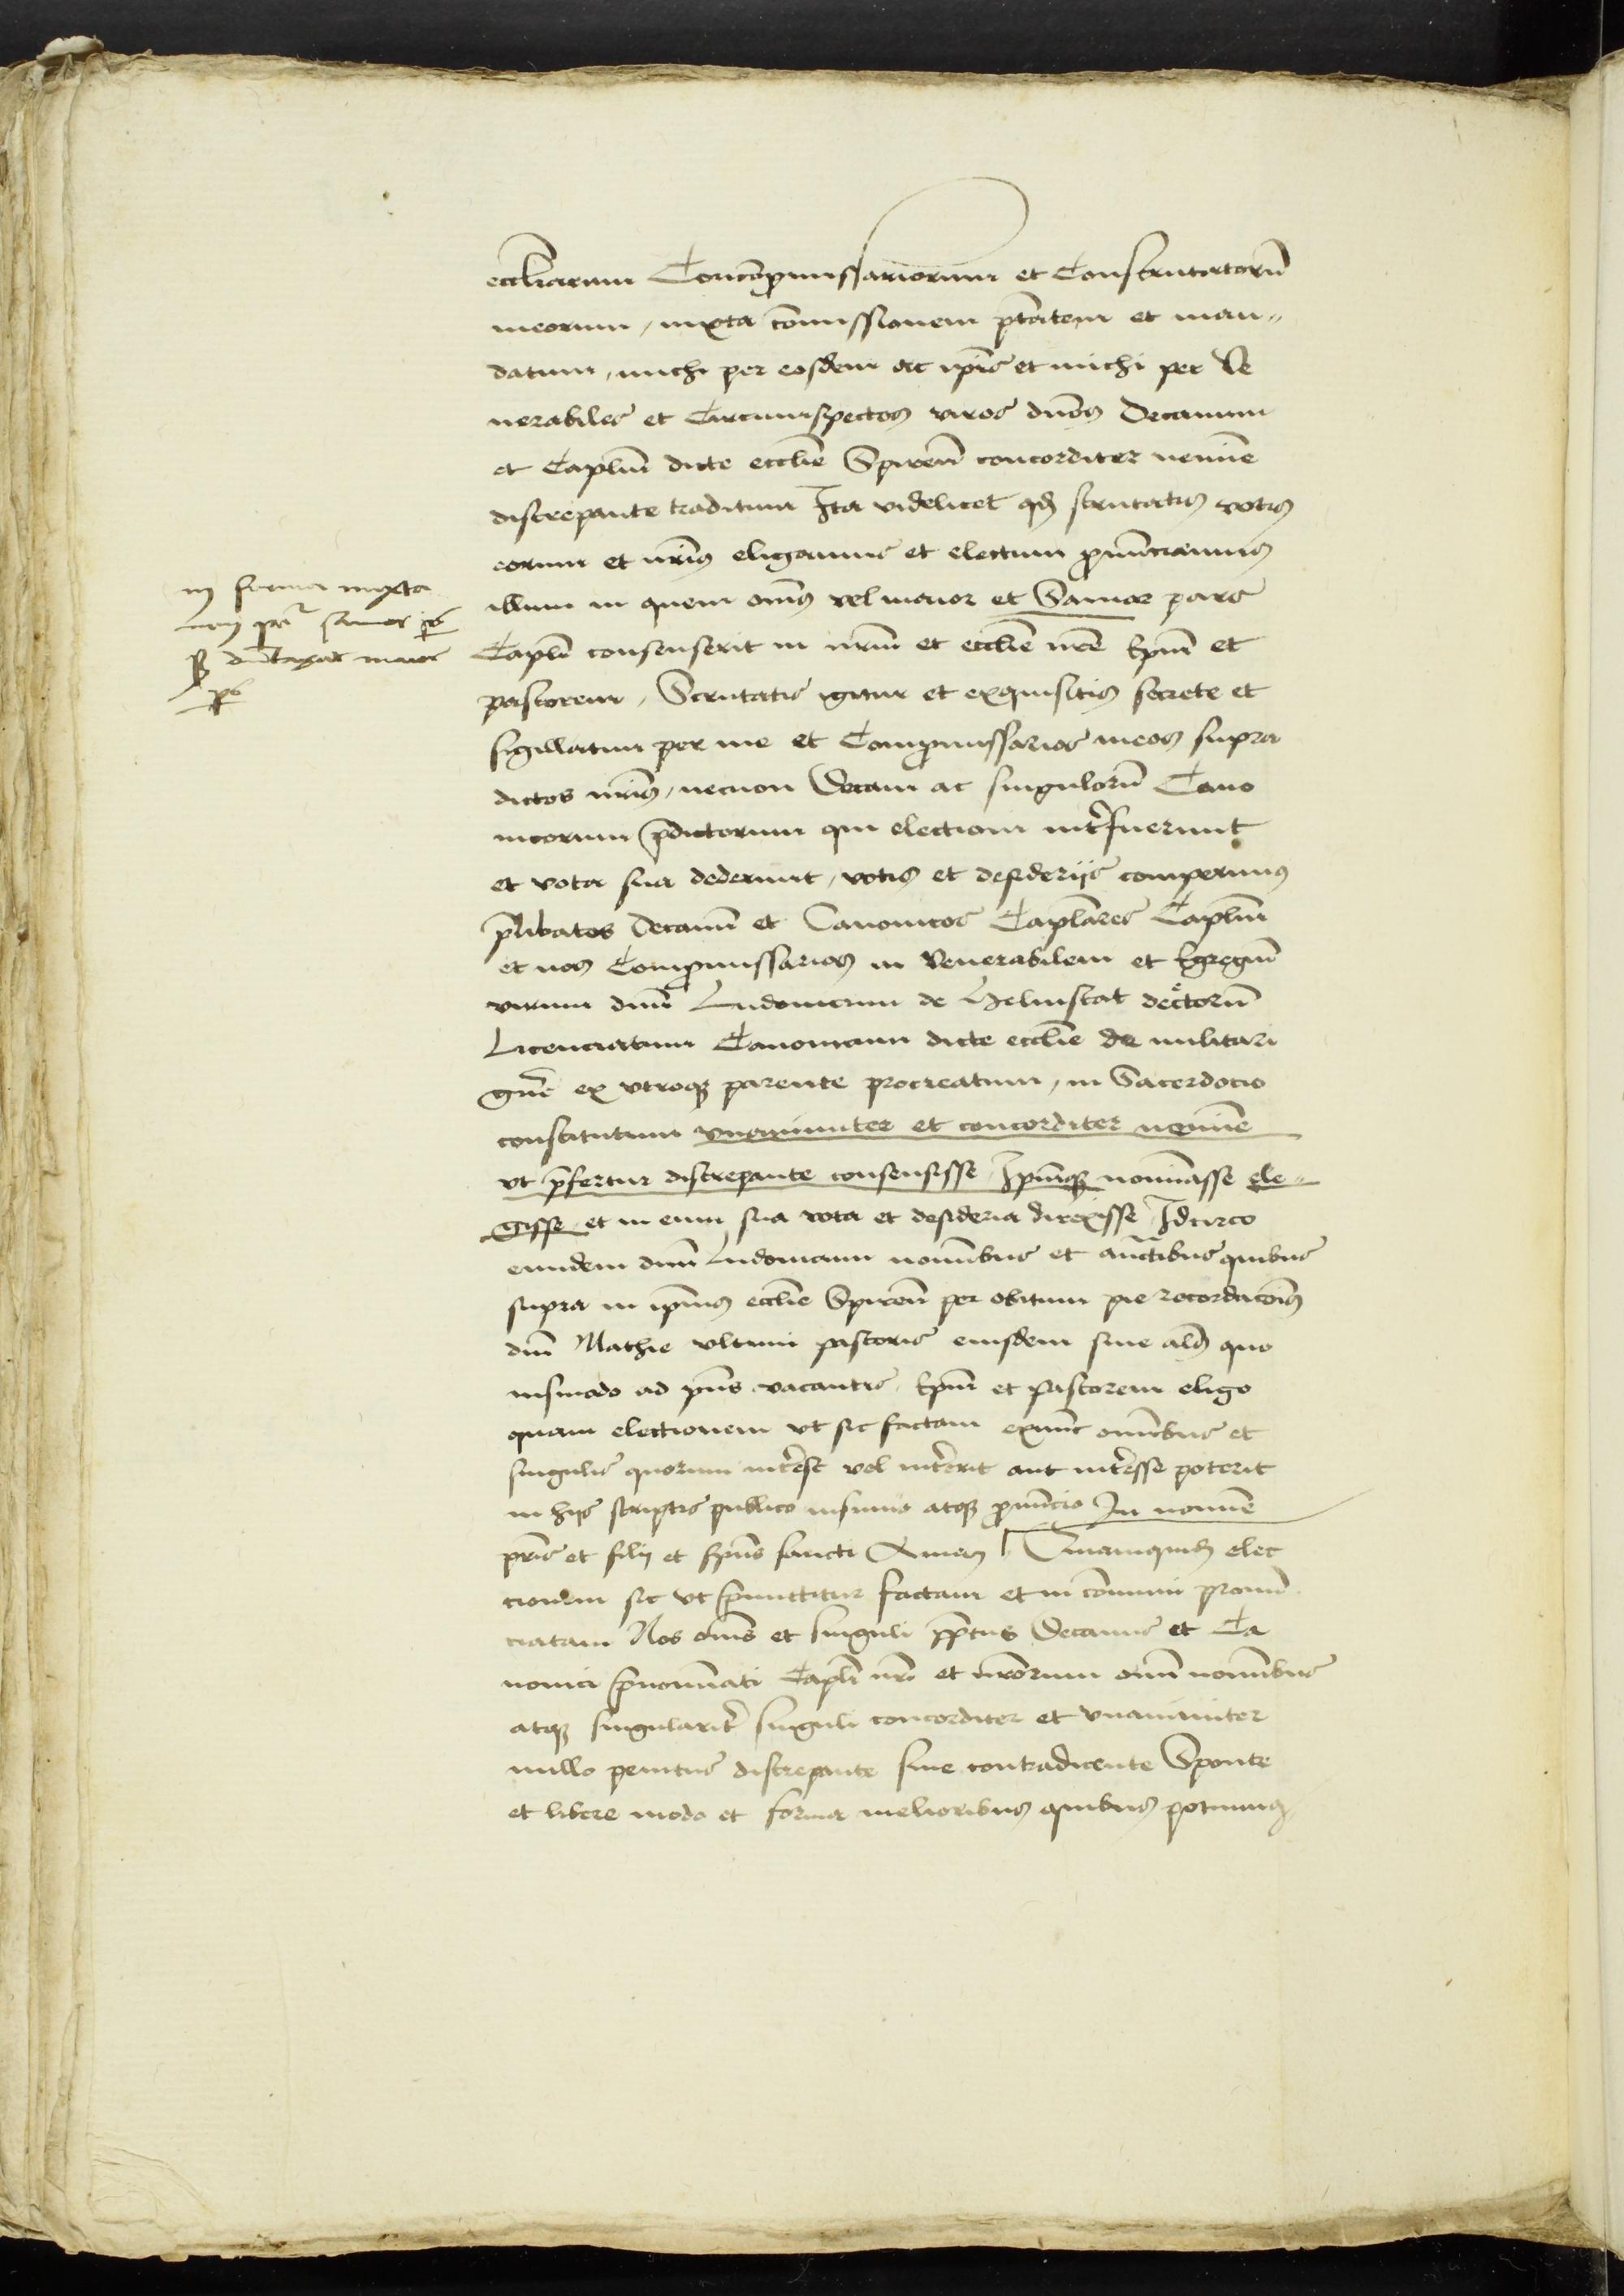 in forma mixta
pars
s dutaxat maior
ps
eccliarum Concōpromissariorum et Conscrutatorū
meorum, iuxta cōmissionem ptātem et man„
datum, michi per eosdem ac ipīs et michi per Ve
nerabiles et Circumspectos viros dnōs Decanum
et Caplm̄ dicte ecclie Spireñ concorditer nemīe
discrepante traditum Ita videlicet qd scrutatis votis
eorum et nrīs eligamus et electum pronūcciamus
illum in quem om̄s vel maior et Sanior pars
Caplī consenserit in nrm̄ et ecclie nrē Epm̄ et
pastorem, Scrutatis igitur et exquisitis secrete et
sigillatim per me et Compromissarios meos supra
dictos nrīs, necnon Decani ac singulorū Cano
nicorum pdictorum qui electioni intrfuerunt
et vota sua dederunt, votis et desiderijs comperimus
plibatos Decanū et Canonicos Caplāres Caplm̄
et nos Compromissarios in Venerabilem et Egregiū
virum dnm̄ Ludowicum de Helmstat decretorū
Licenciatum Canonicum dicte ecclie de militari
gnre ex vtroq parente procreatum, in Sacerdocio
constitutum vnanimiter et concorditer nemīe
vt pfertur discrepante consensisse Ipmq nomīasse ele„
gisse, et in eum sua vota et desideria direxisse Idcirco
eundem dnm̄ Ludowicum nomībus et auctibus quibus
supra in ipīus ecclie Spireñ per obitum pie recordacōis
dnī Mathie vltimi pastoris eiusdem siue als quo
uismodo ad pns vacantis, Epm̄ et pastorem eligo
quam electionem vt sic factam exnūc omībus et
singulis quorum intrest vel intrerit aut intresse poterit
in hijs scriptis publico insinuo atq pronūcio In nomīe
pris et filij et spūs sancti Amen Quamquid elec
cionem sic vt pmittitur factam et in cōmuni pronū
ciatam Nos om̄s et singuli Decanus et Ca
nonici pnomīati Caplī nrī et nrōrum om̄ nomībus
atq singularitr singuli concorditer et vnanimiter
nullo penitus discrepante siue contradicente Sponte
et libere modo et forma melioribus quibus potuimus